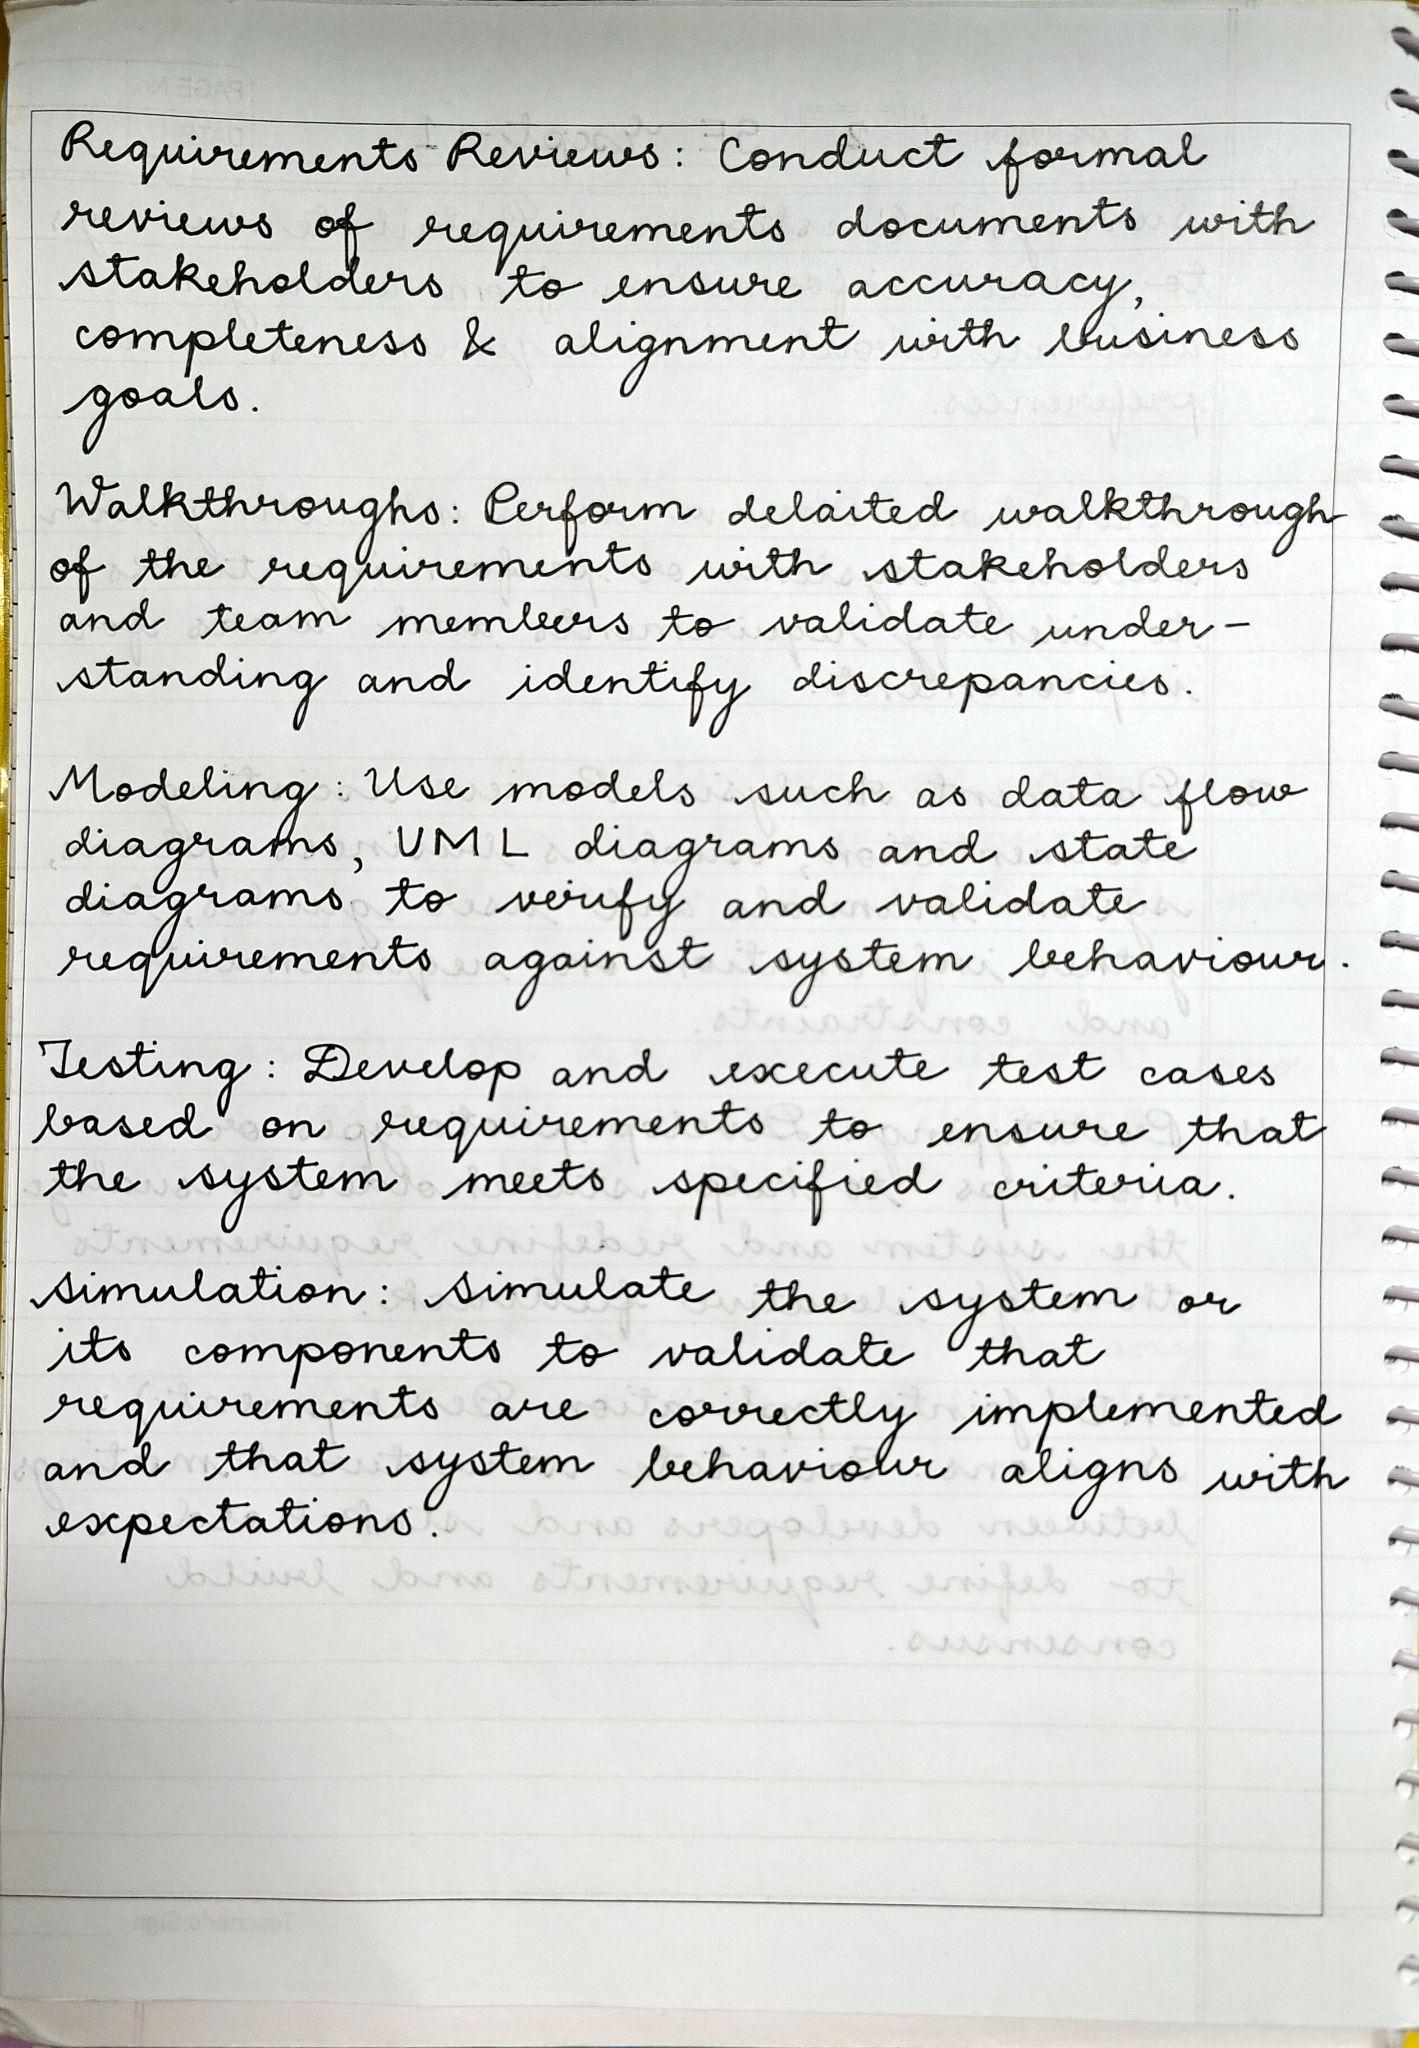 Requirements Reviews: Conduct formal
reviews of requirements documents with
stakeholders to ensure accuracy,
completeness & alignment with business
goals.
Walkthroughs: Perform delaited walkthrough
of the requirements with stakeholders
and team members to validate under-
standing and identify discrepancies.
Modeling: Use models such as data flow
diagrams, UML diagrams and state
diagrams to verify and validate
requirements against system behaviour.
Testing: Develop and execute test cases
based on requirements to ensure that
the system meets specified criteria.
Simulation: Simulate the system or
its components to validate that
requirements are correctly implemented
and that system behaviour aligns with
expectations.